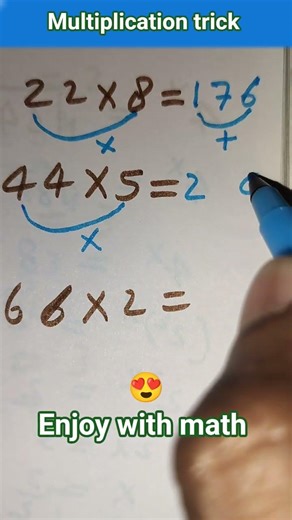 Multiplication trick
22×8=176
x +
44×5=2 0
x
66×2=
Enjoy with math